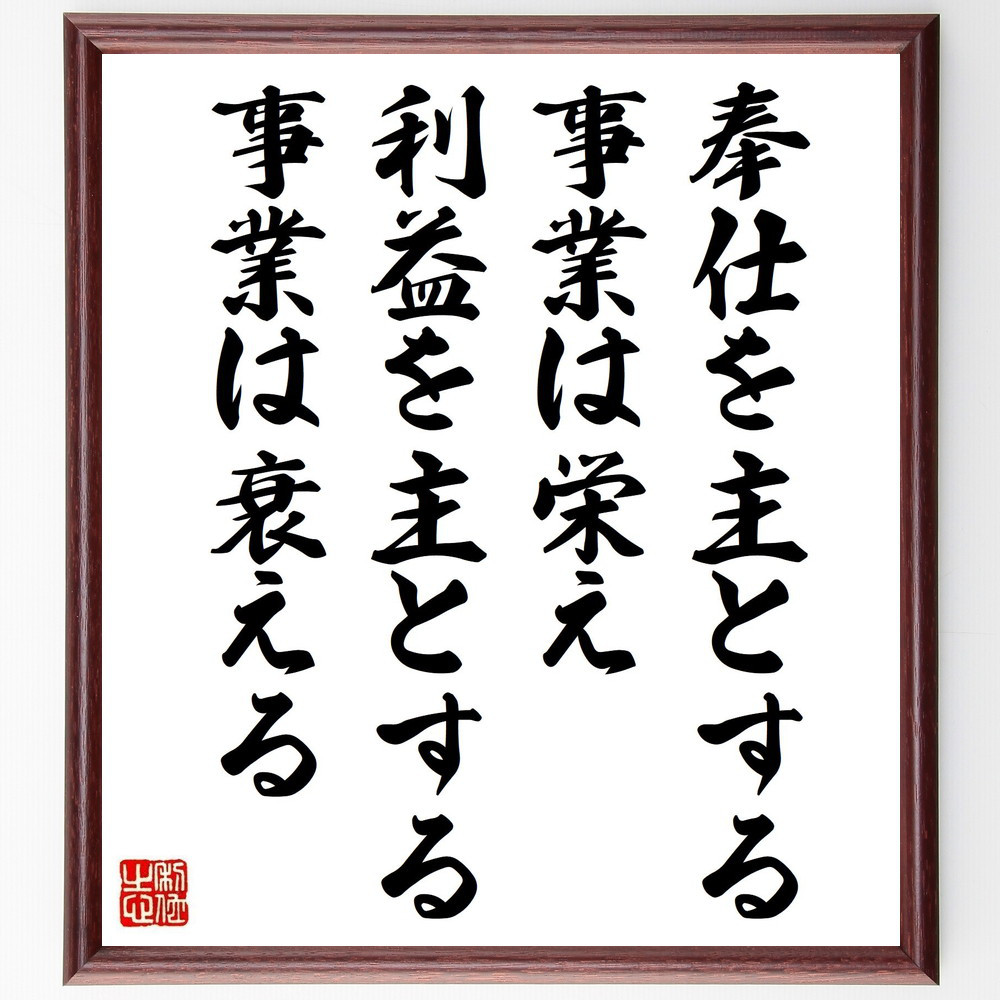 奉仕を主とする
事業は栄え
利益を主とする
事業は衰える